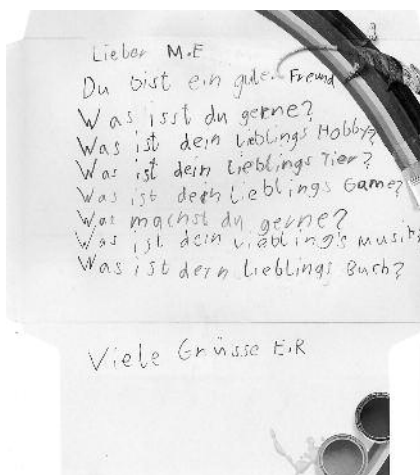 Lieber M.E
Du bist ein guter Freund
Was isst du gerne?
Was ist dein Lieblings Hobby?
Was ist dein Lieblings Tier?
Was ist dein Lieblings Game?
Was machst du gerne?
Was ist dein Lieblings Musik?
Was ist dein Lieblings Buch?
Viele Grüsse E.R